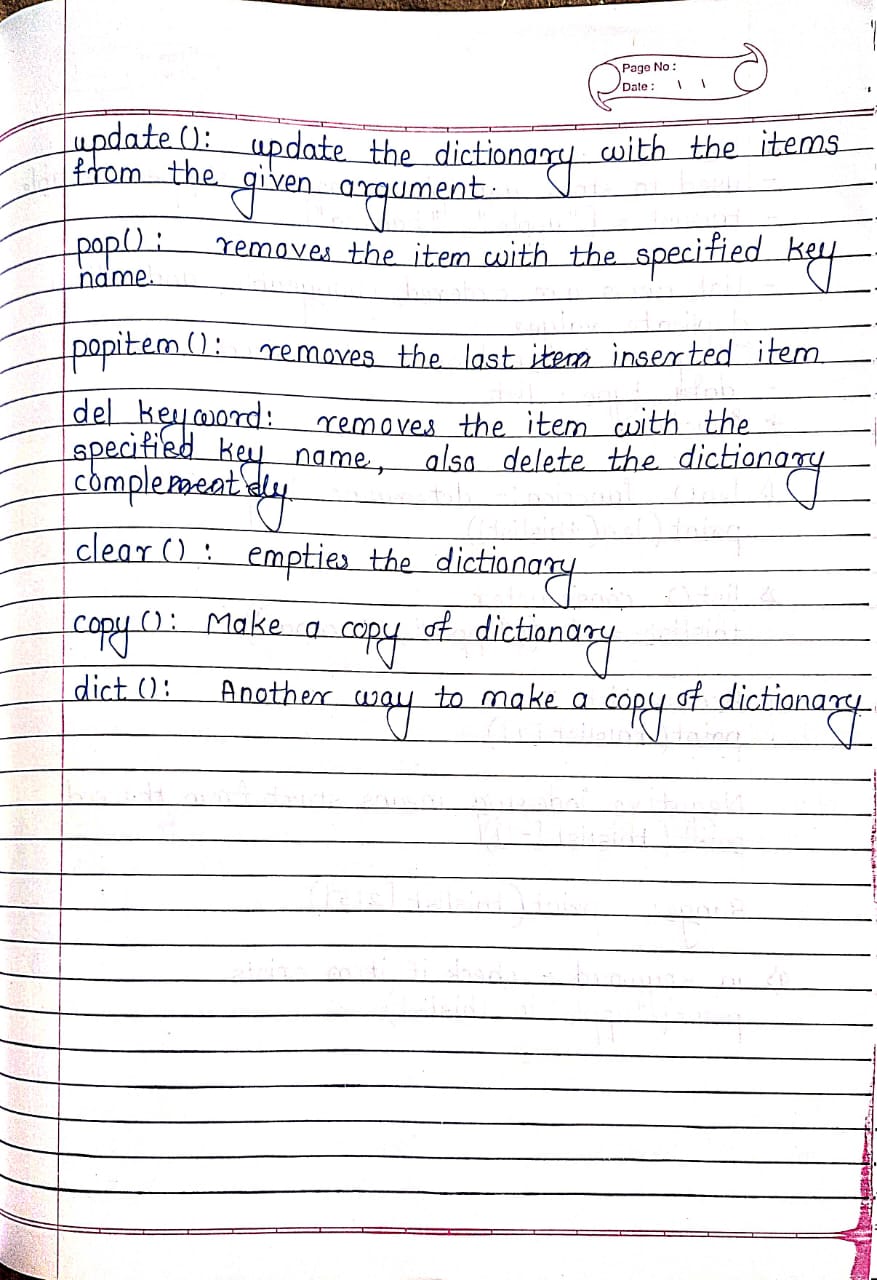 Page No :
Date :
update (): update the dictionary with the items
from the given argument.
pop() : removes the item with the specified key
name.
popitem (): removes the last item inserted item
del keyword: removes the item with the
specified key name, also delete the dictionary
clear () : empties the dictionary
copy (): Make a copy of dictionary
dict (): Another way to make a copy of dictionary